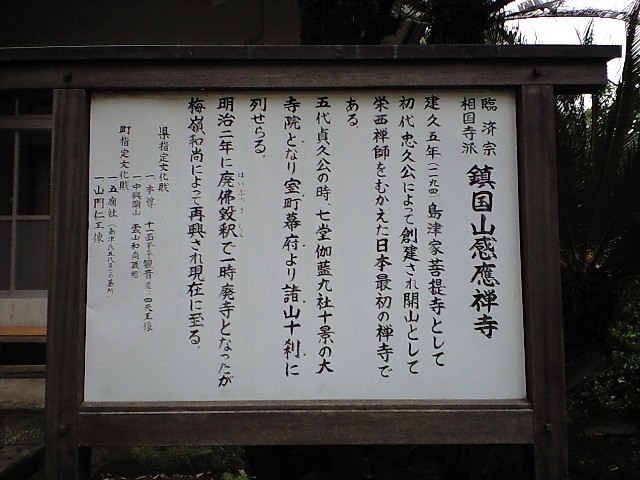 臨済宗
相国寺派
鎮国山感應禅寺
建久五年(一一九四)島津家菩提寺として
初代忠久公によって創建され開山として
栄西禅師をむかえた日本最初の禅寺で
ある。
五代貞久公の時、七堂伽藍九社十景の大
寺院となり室町幕府より諸山十刹に
列せらる。
明治二年に廃佛毀釈で一時廃寺となったが
はいぶつきしゃく
梅嶺和尚によって再興され現在に至る。
県指定文化財
一、本尊 十一面千手観音 四天王像
一、中興開山 雲山和尚頂相
町指定文化財
一、五廟社(島津氏五代までの墓所)
一、山門仁王像